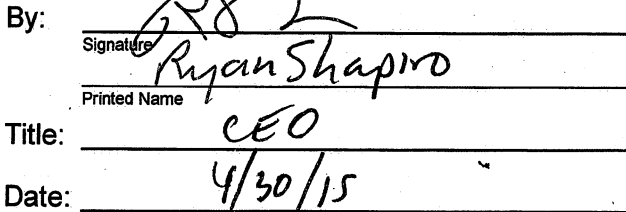 By:
Signature
Ryan Shapiro
Printed Name
Title: CEO
Date: 4/30/15